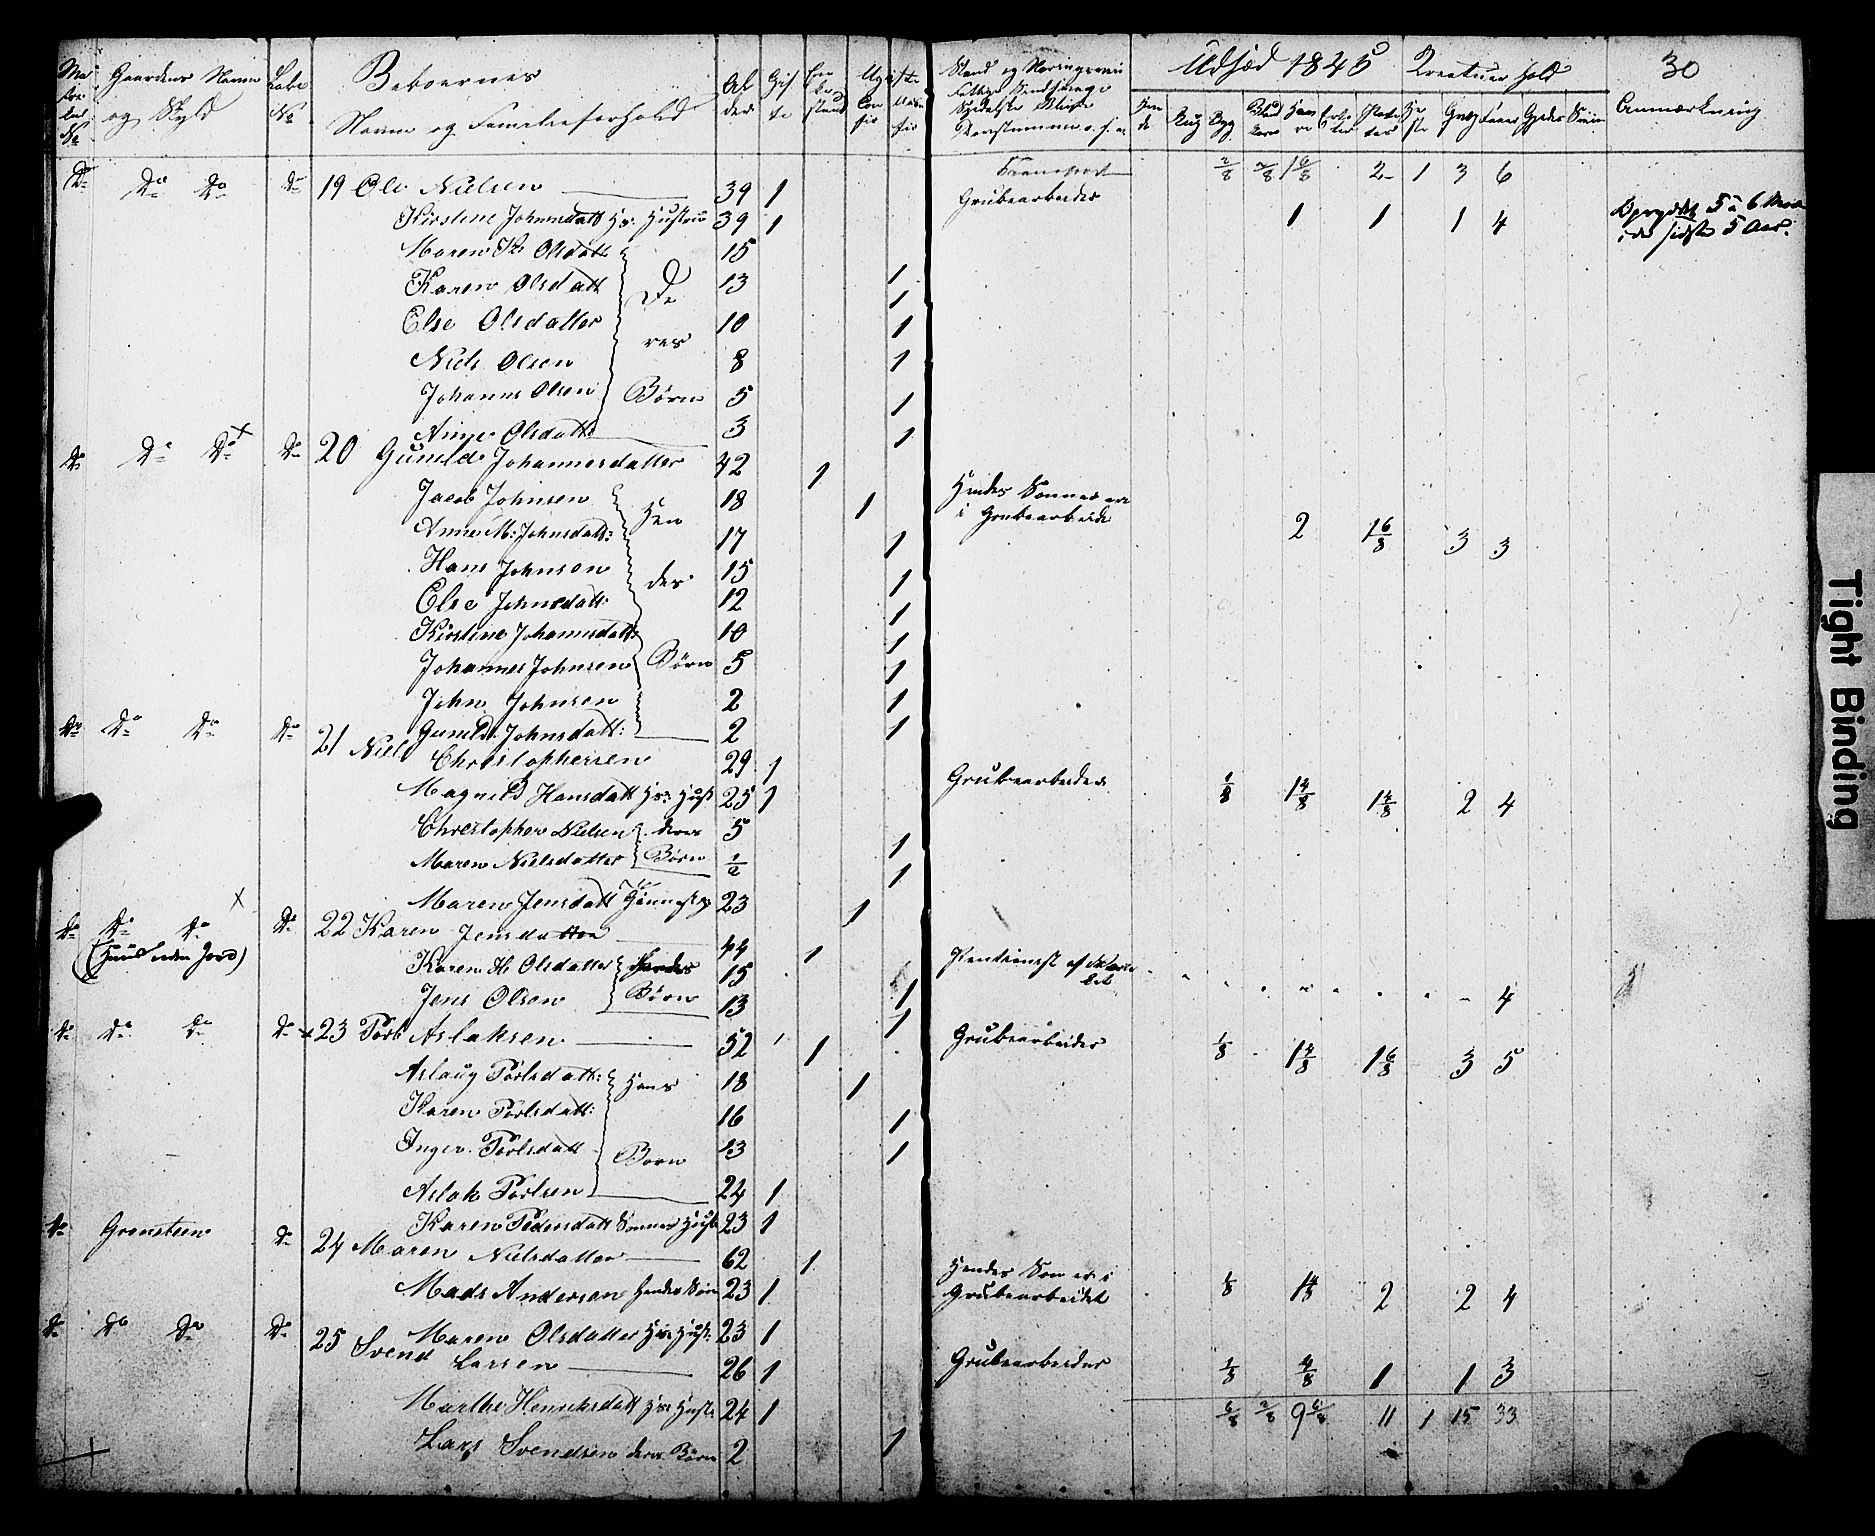 Gaardens Navn og Skyld
Beboernes Navn og Familieforhold
Al der
Gif te
En ke stand
Ugifte
Con fir
Udsæd 1845
Creatur hold
30
Rug
Byg
Anmærkning
Transport 2/8 2/8 1 6/8 2 1 3 6
Do Do Do Do 19 Ole Nielsen 39 1 Grubearbeider
Kirstine Johansdatt Hs: Hustru 39 1 1 1 1 4
5 à 6
i de sidste 5 Aar.
Maren K Olsdatt 15
Karen Olsdatt De 13 1
Else Olsdatter 10 1
res
Niels Olsen 8 1
Johannes Olsen Børn 5 1
Anne Olsdatt: 3 1
Do Do Do Do 20 Gunild Johannesdatter 42 1
Jacob Johnsen Hen 18 1 Hendes Sønner ere
i Grubearbeide 2 1 6/8 3 3
Anne M: Johnsdatt: 17 1
Hans Johnsen des 15 1
Else Johnsdatt: 12 1
Kirstine Johannsdatt: 10 1
Johannes Johnsen Børn 5 1
John Johnsen 2 1
Gunild Johnsdatt: 2 1
Do Do Do Do 21 Niels Christophersen 29 1 Grubearbeider 1/8 1 4/8 1 4/8 2 4
Magnild Hansdatt Hs: Hust 25 1
Christopher Nielsen deres 5 1
Maren Nielsdatter Børn 1/2 1
Maren Jensdatt 23 1
Do Do Do Do 22 Karen Jensdatter 44 1
(Huus uden Jord)
Karen H Olsdatter Hendes 15 1 Pentionist af Værket 4
Jens Olsen Børn 13 1
Do Do Do Do 23 Torb Aslaksen 52 1 Grubearbeider 1/8 1 4/8 1 6/8 3 5
Aslaug Torlsdatt: Hans 18 1
Karen Torlsdatt: 16 1
Inger Torlsdatt Børn 13 1
Aslak Torlsen 24 1
Karen Pedersdatt Sønnens Hust 23 1
Do Gronsteen Do 24 Maren Nielsdatter 62 1
Mads Andersen Hendes Søn 23 1 Hendes Søn er i
Grubearbeidet 1/8 1 4/8 2 2 4
Maren Olsdatter Hs: Hust: 23 1
Do Do Do Do 25 Svend Larsen 26 1 Grubearbeider 1/8 4/8 1 1 3
Marthe Henrichsdatt Hs: Hust: 24 1
Lars Svendsen deres Børn 2 1
6/8 2/8 9 6/8 11 1 15 33
Tight Binding